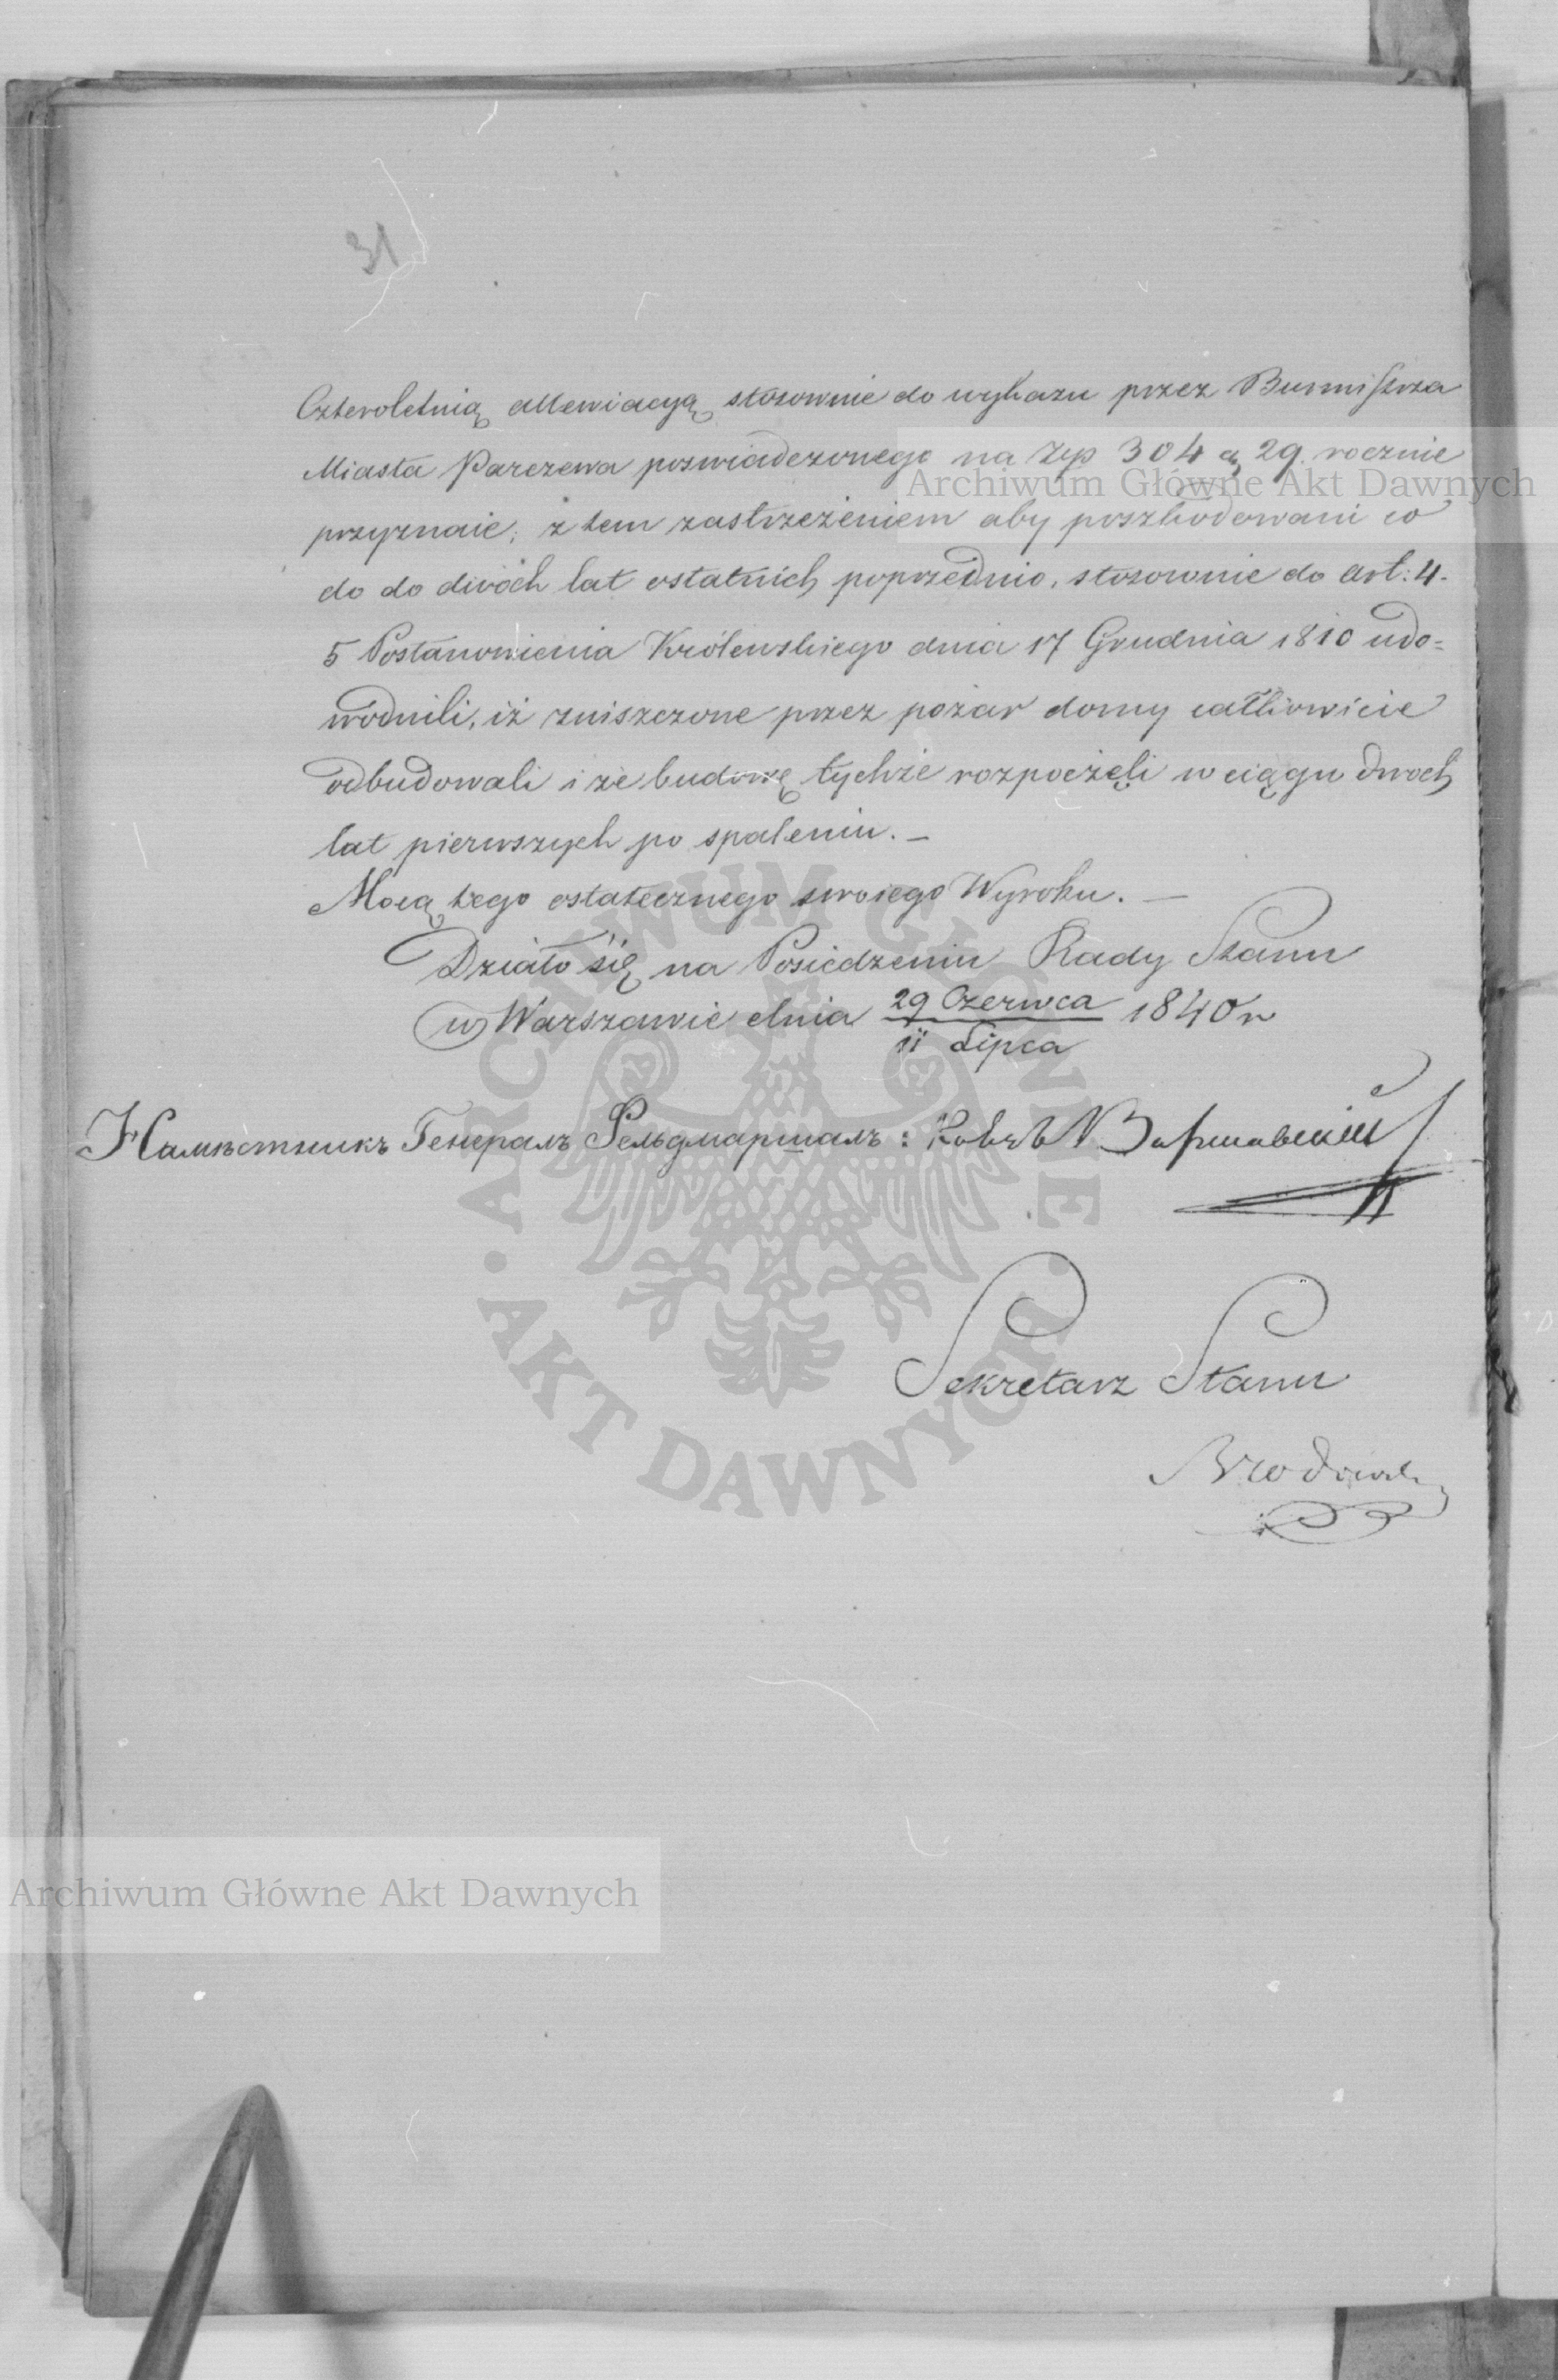 31
Czteroletnią allewiacyą stosownie do wykazu przez Burmistrza
Miasta Parczewa poswiadczonego na Złp 304 g 29. rocznie
przyznaie; z tem zastrzeżeniem aby poszkodowani co
do do dwóch lat ostatnich poprzednio, stosownie do art: 4.
5 Postanowienia Królewskiego dnia 17 Grudnia 1810 udo=
wodnili, iż zniszczone przez pożar domy całkowicie
odbudowali i że budowę tychże rozpoczęli w ciągu dwóch
lat pierwszych po spaleniu. —
Mocą tego ostatecznego swoiego Wyroku. —
Działo się na Posiedzeniu Rady Stanu
w Warszawie dnia 29 Czerwca 1840 r
11 Lipca
Намѣстникъ Генералъ Фельдмаршалъ: Князь Варшавскій
Sekretarz Stanu
Brodowski
Archiwum Główne Akt Dawnych
ARCHIWUM GŁÓWNE · AKT DAWNYCH ·
Archiwum Główne Akt Dawnych